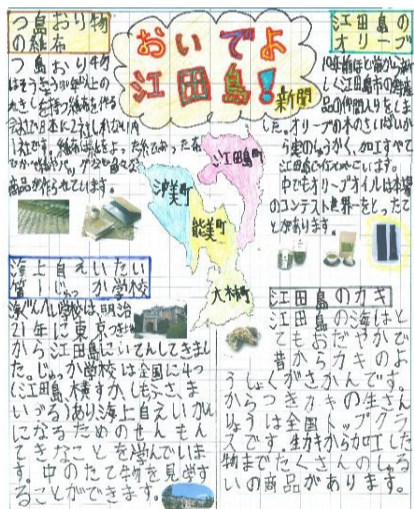 おいでよ
江田島!
新聞
つ島おり物
の綿布
つ島おり物
はそうぎょう
きしを持つ綿布を作る
会社で日本に2社しかない内
の1社です。
商品が作られています。
江田島の
オリーブ
した。オリーブの木のさいばいか
ら実のしゅうかく、加工すべて
江田島で行ってい
中でもオリーブオイルは本場
のコンテストで世界一をとったこ
とがあります。
江田島町
沖美町
能美町
大柿町
海上自えいたい
第一じゅつか学校
海ぐんへい学校は、明治
21年に東京つきじ
から江田島にいてんしてきまし
た。じゅつか学校は全国に4つ
(江田島、横すか、しもふさ、ま
いづる)あり海上自えいかん
になるためのせんもん
てきなことを学んでいま
す。中のたて物を見学す
ることができます。
江田島のカキ
江田島の海はと
てもおだやかで
昔からカキのよ
うしょくがさかんです。
からつきカキの生さん
りょうは全国トップクラ
スです。生カキから加工した
物までたくさんのしゅる
いの商品があります。